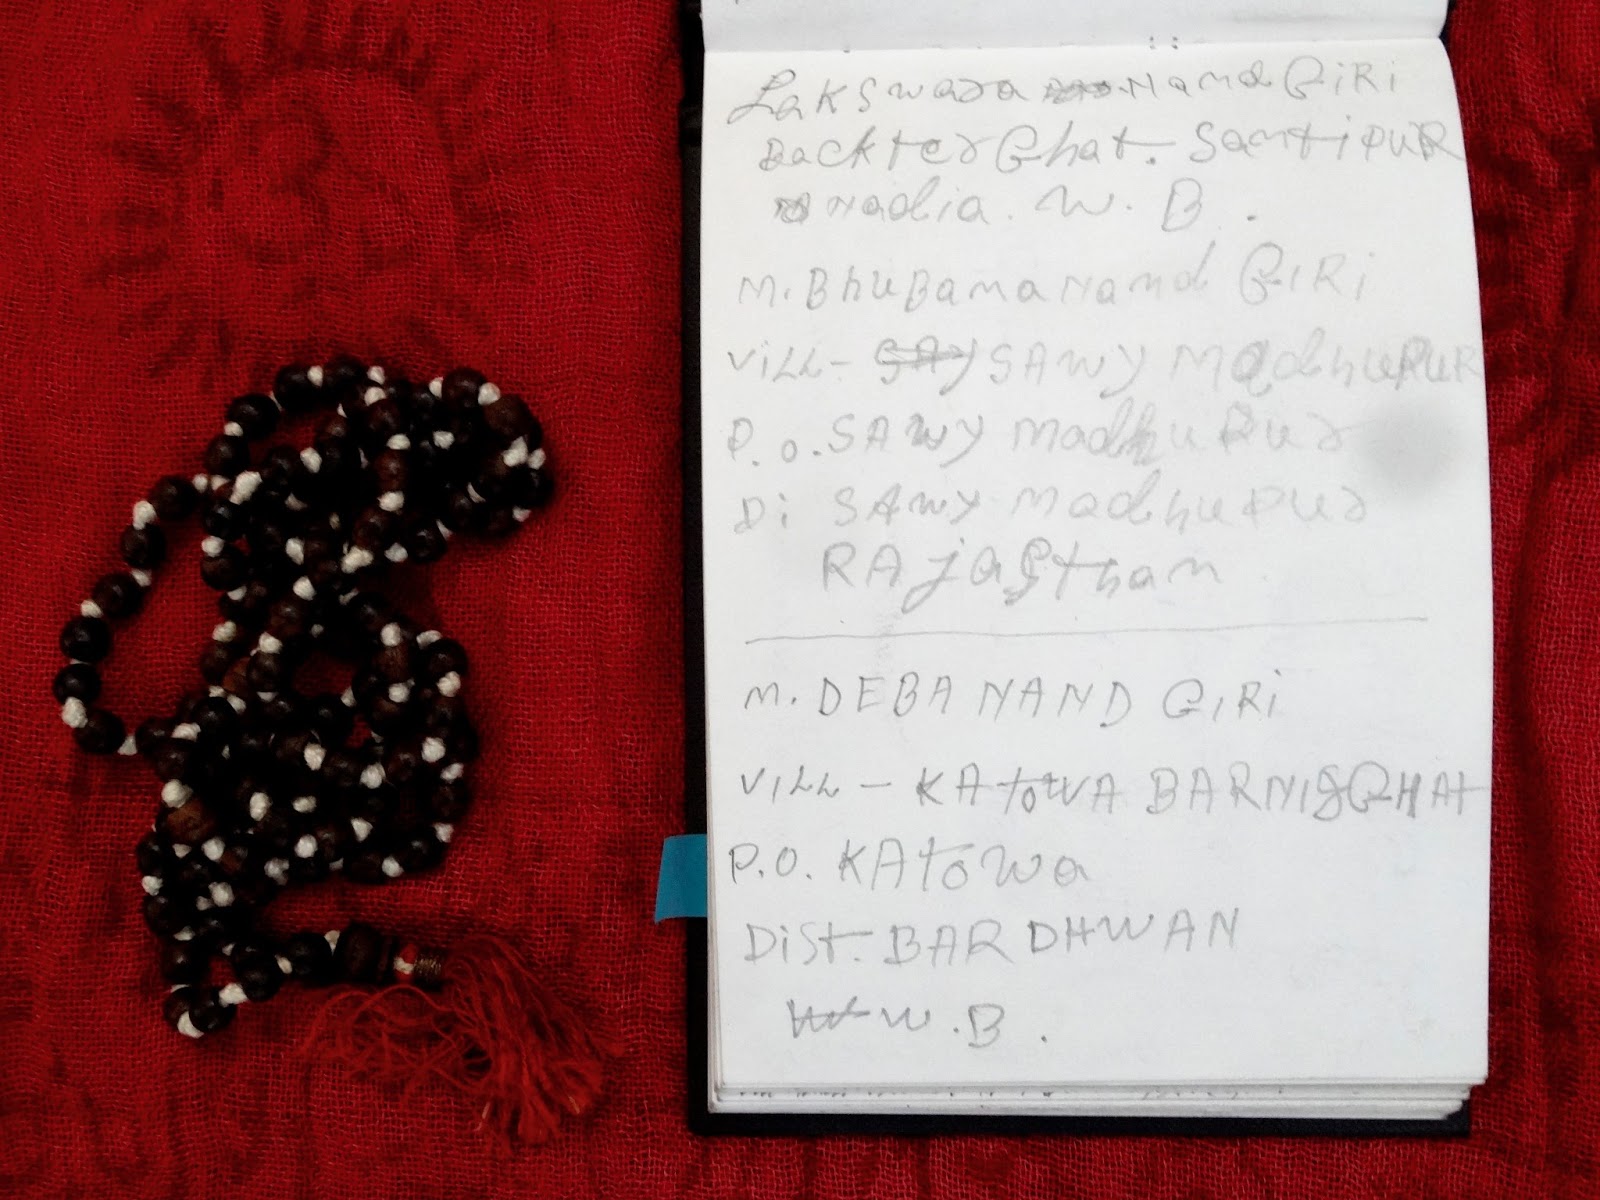 Lakswara Nand GiRi
Backter Ghat. SantipuR
Nadia. W. B.
M. BhuBanaNand GiRi
ViLL- SAWY MadhupuR
P.O. SAWY Madhupur
Di SAWY Madhupur
RAjasthan
M. DEBANAND GiRi
ViLL - KAtowA BARNISGHAt
P.O. KAtowa
DiSt. BARDHWAN
W.B.